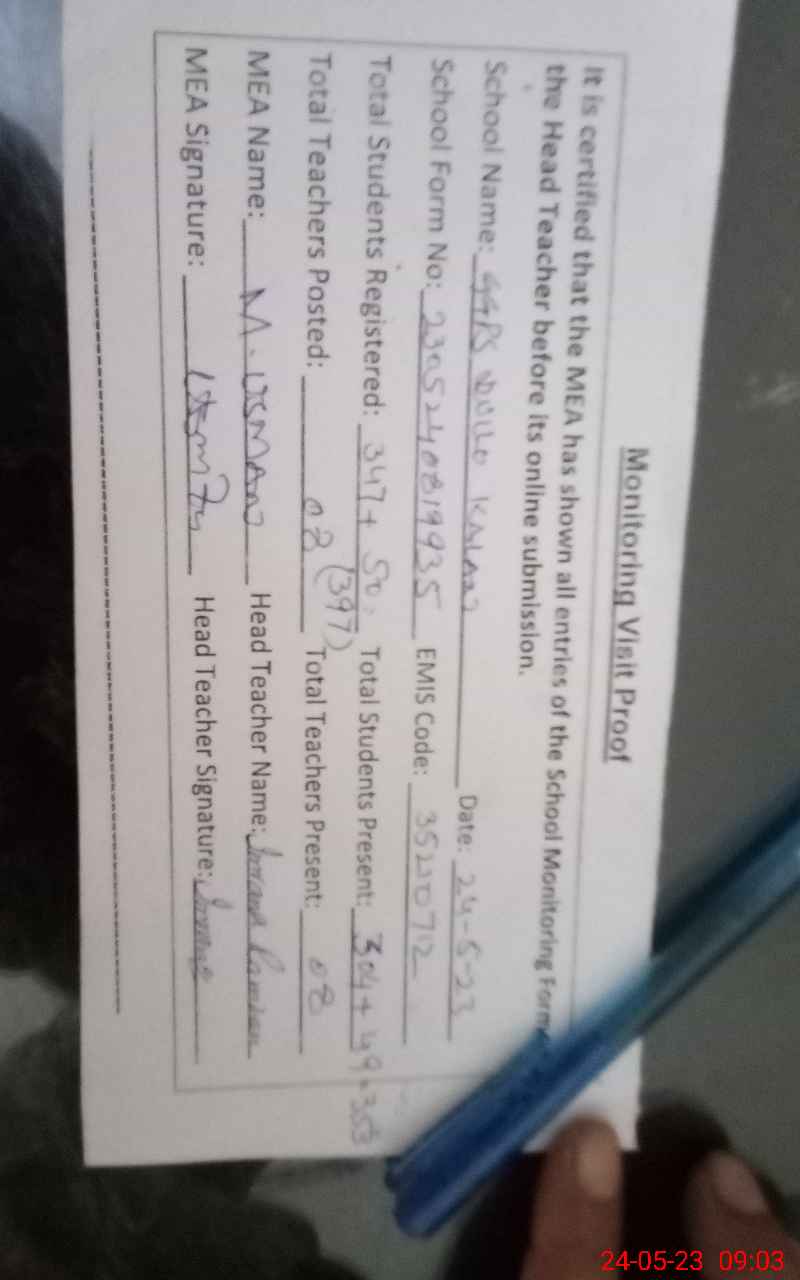 Monitoring Visit Proof
It is certified that the MEA has shown all entries of the School Monitoring Form
the Head Teacher before its online submission.
School Name: GGPS KALAN Date: 24-5-23
School Form No: 2305240819935 EMIS Code: 35220712
Total Students Registered: 347+50 Total Students Present: 304+49=353
(397)
Total Teachers Posted: 08 Total Teachers Present: 08
MEA Name: M. USMAN Head Teacher Name:
MEA Signature: Head Teacher Signature:
24-05-23 09:03